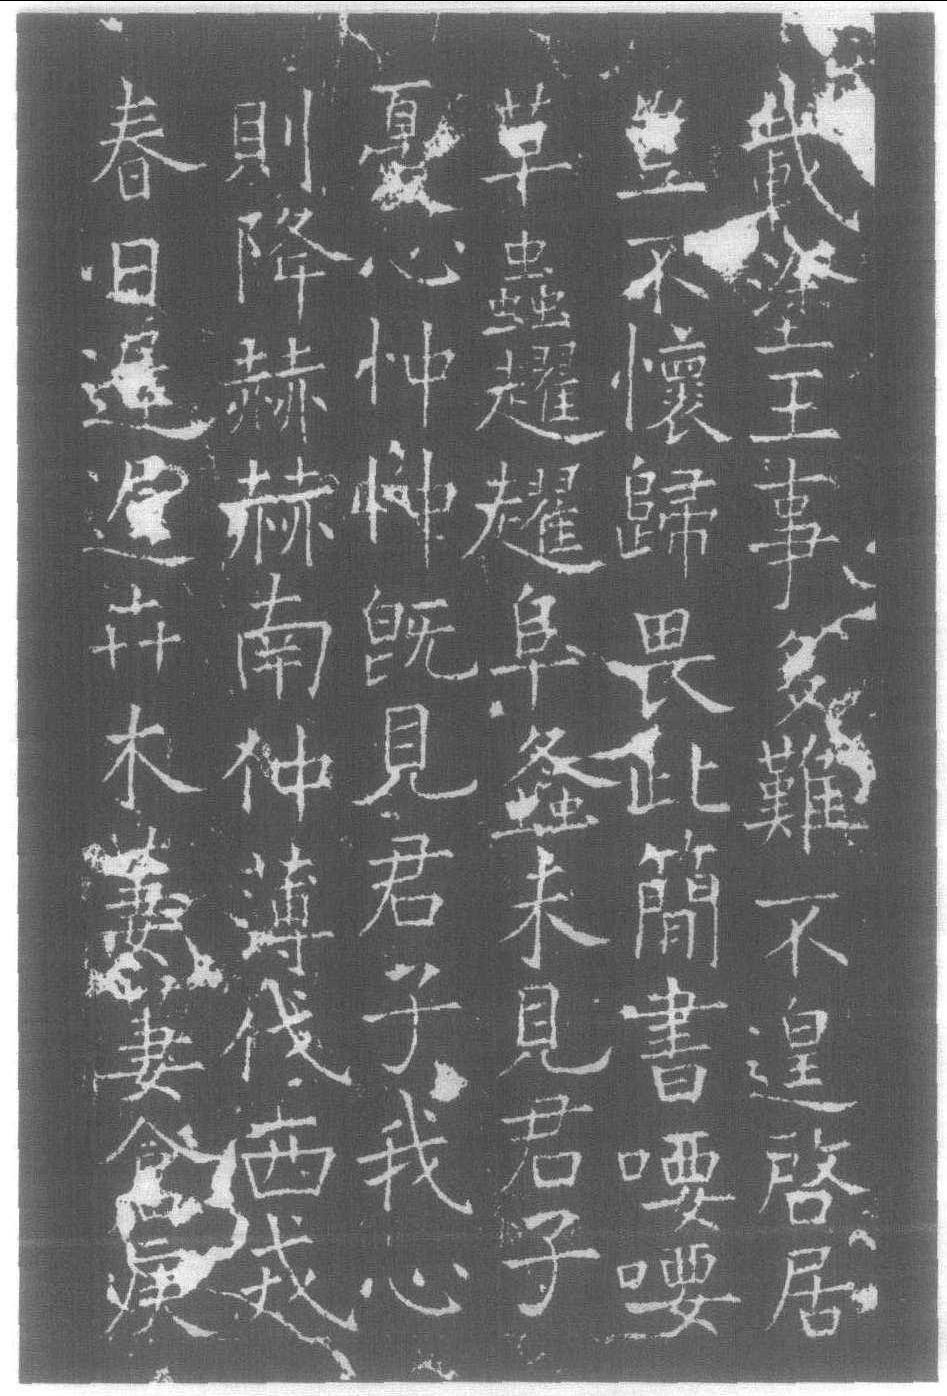 載塗王事多難不遑啓居
豈不懷歸畏此簡書喓喓
草蟲趯趯阜螽未見君子
憂心忡忡既見君子我心
則降赫赫南仲薄伐西戎
春日遲遲卉木萋妻倉庚